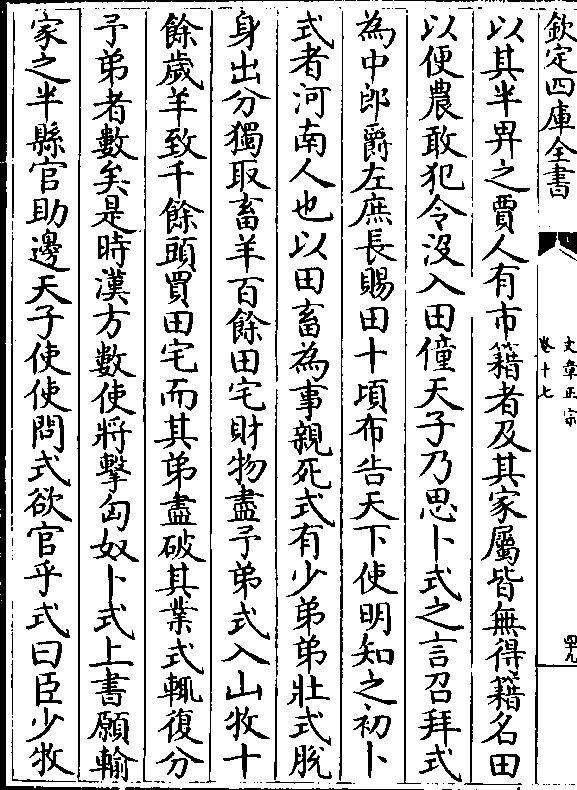 欽定四庫全書
文章正宗
卷十七
四九
以其半畀之賈人有市籍者及其家屬皆無得籍名田
以便農敢犯令沒入田僮天子乃思卜式之言召拜式
為中郎爵左庶長賜田十頃布告天下使明知之初卜
式者河南人也以田畜為事親死式有少弟弟壯式脫
身出分獨取畜羊百餘田宅財物盡予弟式入山牧十
餘歲羊致千餘頭買田宅而其弟盡破其業式輒復分
予弟者數矣是時漢方數使將擊匈奴卜式上書願輸
家之半縣官助邊天子使使問式欲官乎式曰臣少牧